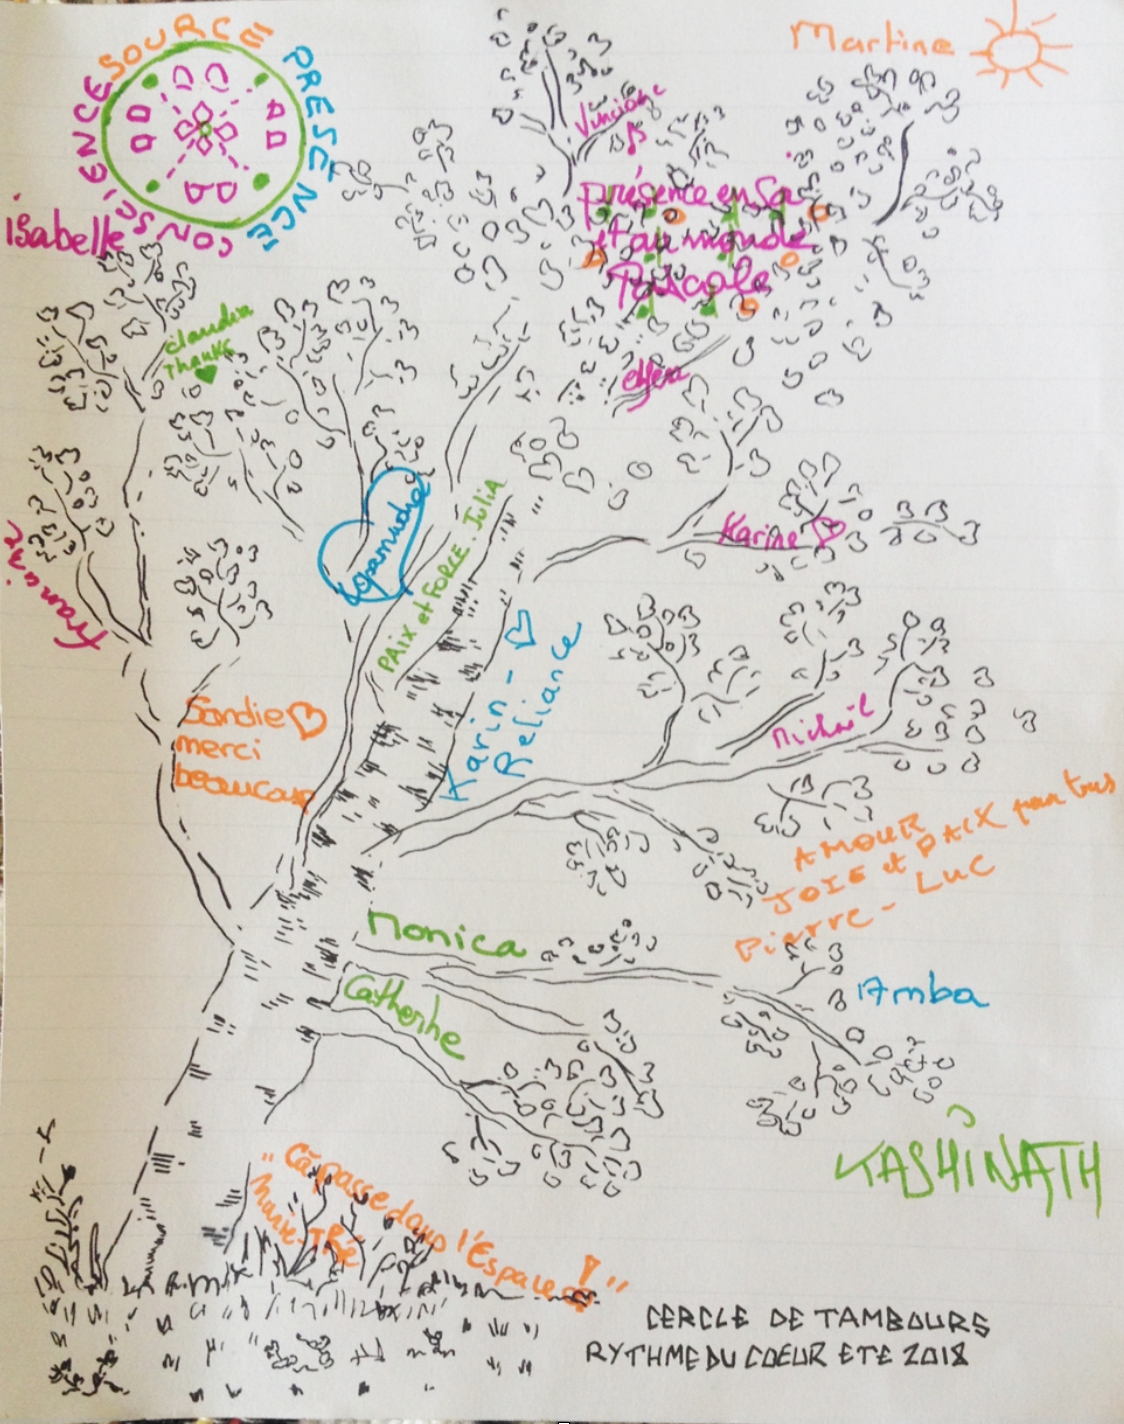 SOURCE
PRESENCE
CONSCIENCE
isabelle
Martine
présence en soi
et au monde
Pascale
Claudia
Thanks
Karine
Lopamudra
PAIX et FORCE. Julia
Karin -
Reliance
Sandie
merci
beaucoup
Michaël
AMOUR
JOIE et PAIX pour tous
Pierre - LUC
Monica
Amba
Catherine
KASHINATH
" Cā passe dans l'Espace ! "
Marie-
CERCLE DE TAMBOURS
RYTHME DU COEUR ETE 2018